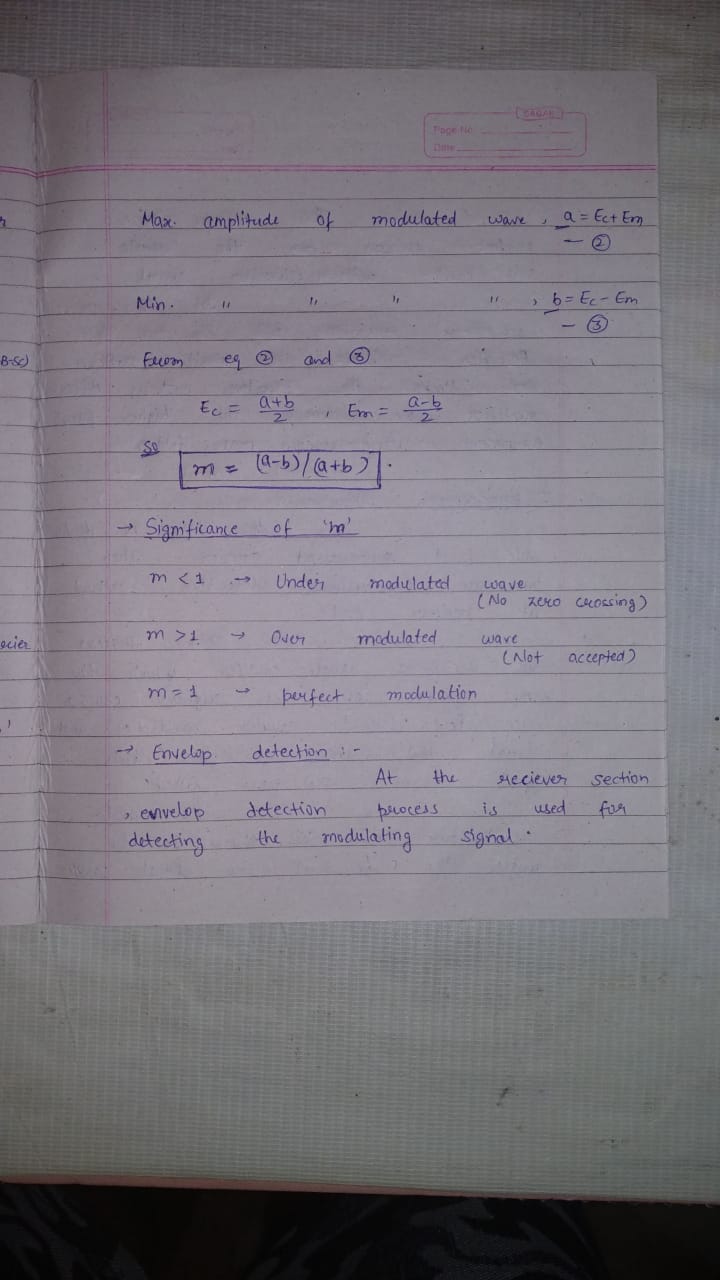 SAGAR
Page No
Date
Max. amplitude of modulated wave, a = Ec + Em
— ②
Min. " " " " , b = Ec - Em
— ③
From eq ② and ③
Ec = a+b/2 , Em = a-b/2
So
m = (a-b)/(a+b).
→ Significance of 'm'
m < 1 → Under modulated wave
(No zero crossing)
m > 1 → Over modulated wave
(Not accepted)
m = 1 → perfect modulation
→ Envelop detection :-
At the reciever section
, envelop detection process is used for
detecting the modulating signal.
B-Sc)